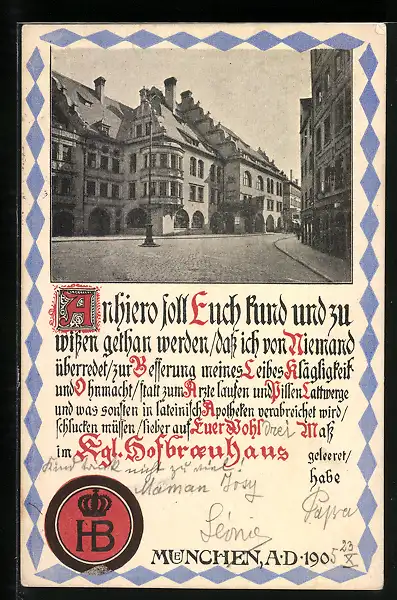 Anhiero soll Euch kund und zu
wißen gethan werden/daß ich von Niemand
überredet/zur Besserung meines Leibes Klägligkeit
und Ohnmacht/statt zum Arzte laufen und Pillen Lattwerge
und was sonsten in lateinisch Apotheken verabreichet wird/
schlucken müssen/lieber auf Euer Wohl drei Maß
im Kgl. Hofbræuhaus geleeret/
habe
nicht zu viel!
Maman Josy
Papa
Léonie
HB
MUENCHEN, A·D·1905 23/X